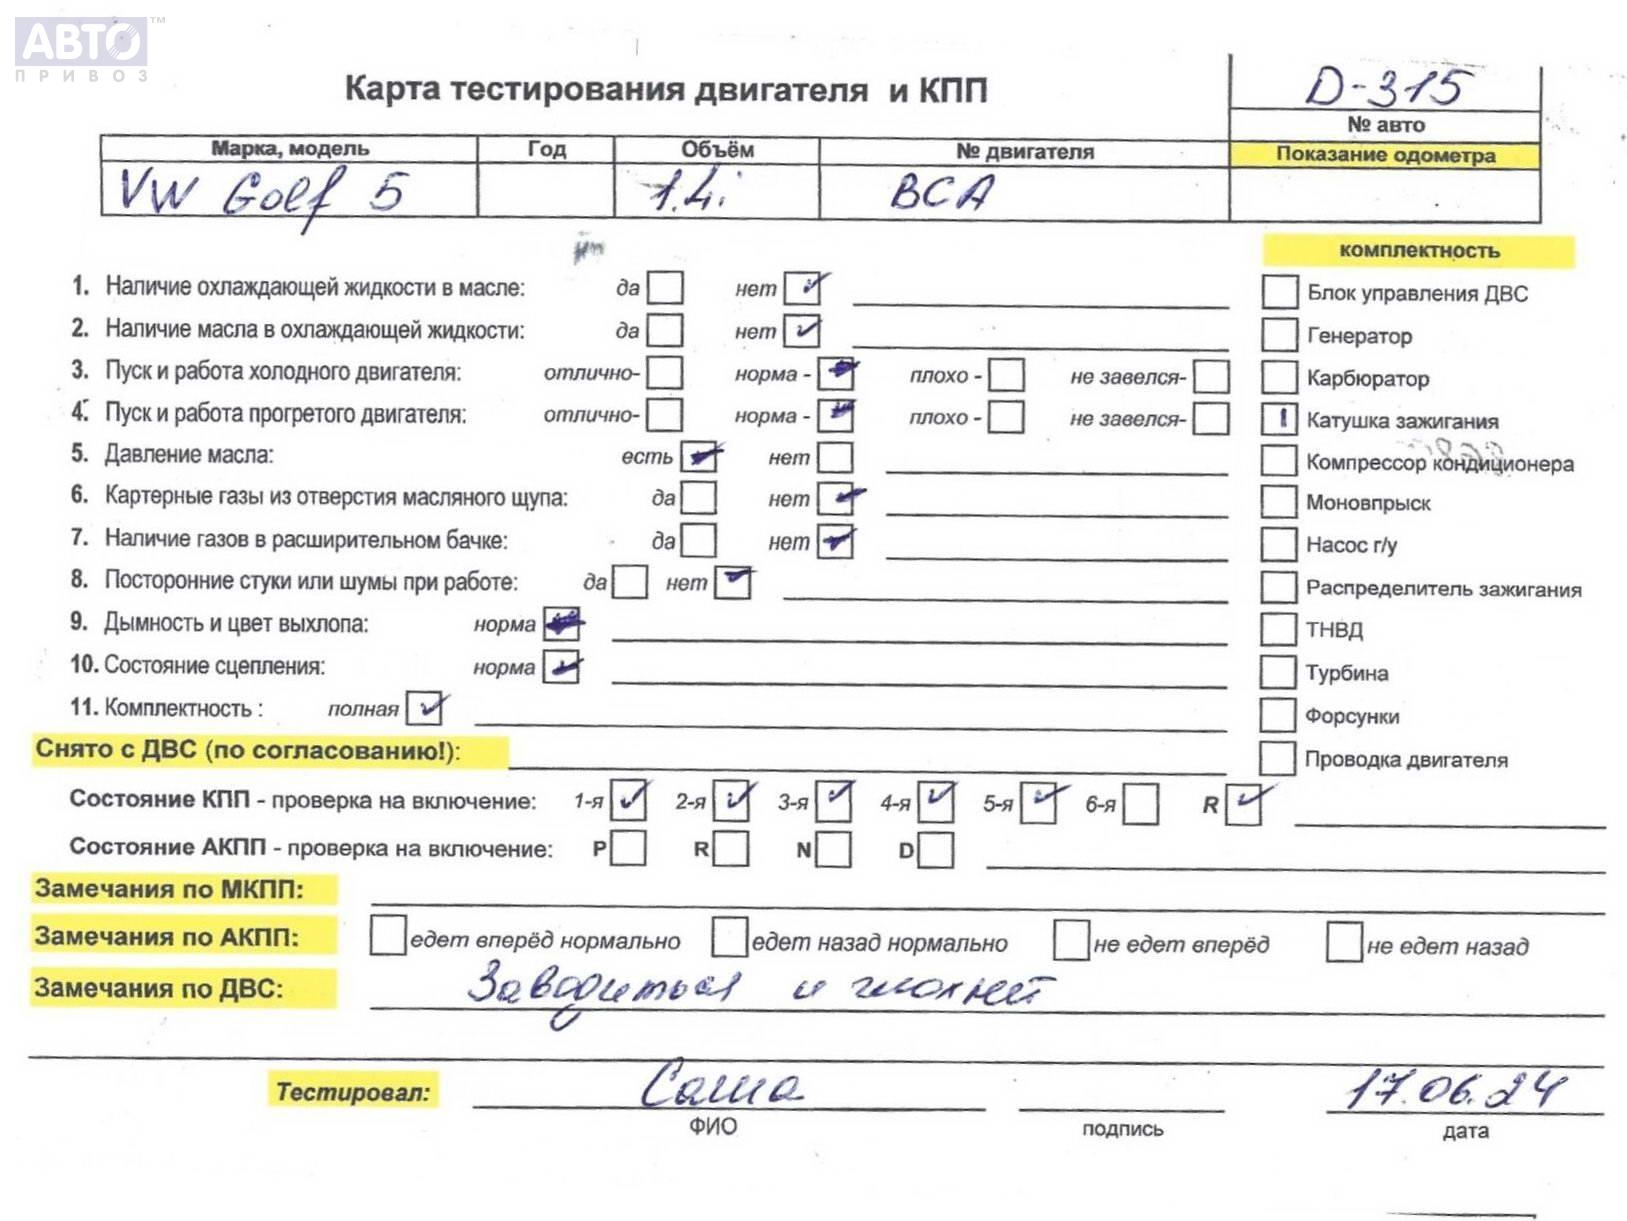 АВТО ™
ПРИВОЗ
Карта тестирования двигателя и КПП
D-315
№ авто
Марка, модель Год Объём № двигателя Показание одометра
VW Golf 5 1.4i BCA
комплектность
1. Наличие охлаждающей жидкости в масле: да нет
Блок управления ДВС
2. Наличие масла в охлаждающей жидкости: да нет
Генератор
3. Пуск и работа холодного двигателя: отлично- норма - плохо - не завелся-
Карбюратор
4. Пуск и работа прогретого двигателя: отлично- норма - плохо - не завелся-
Катушка зажигания
5. Давление масла: есть нет
Компрессор кондиционера
6. Картерные газы из отверстия масляного щупа: да нет
Моновпрыск
7. Наличие газов в расширительном бачке: да нет
Насос г/у
8. Посторонние стуки или шумы при работе: да нет
Распределитель зажигания
9. Дымность и цвет выхлопа: норма
ТНВД
10. Состояние сцепления: норма
Турбина
11. Комплектность : полная
Форсунки
Снято с ДВС (по согласованию!):
Проводка двигателя
Состояние КПП - проверка на включение: 1-я 2-я 3-я 4-я 5-я 6-я R
Состояние АКПП - проверка на включение: P R N D
Замечания по МКПП:
Замечания по АКПП: едет вперёд нормально едет назад нормально не едет вперёд не едет назад
Замечания по ДВС: Заводиться и глохнет
Тестировал: Саша 17.06.24
ФИО подпись дата